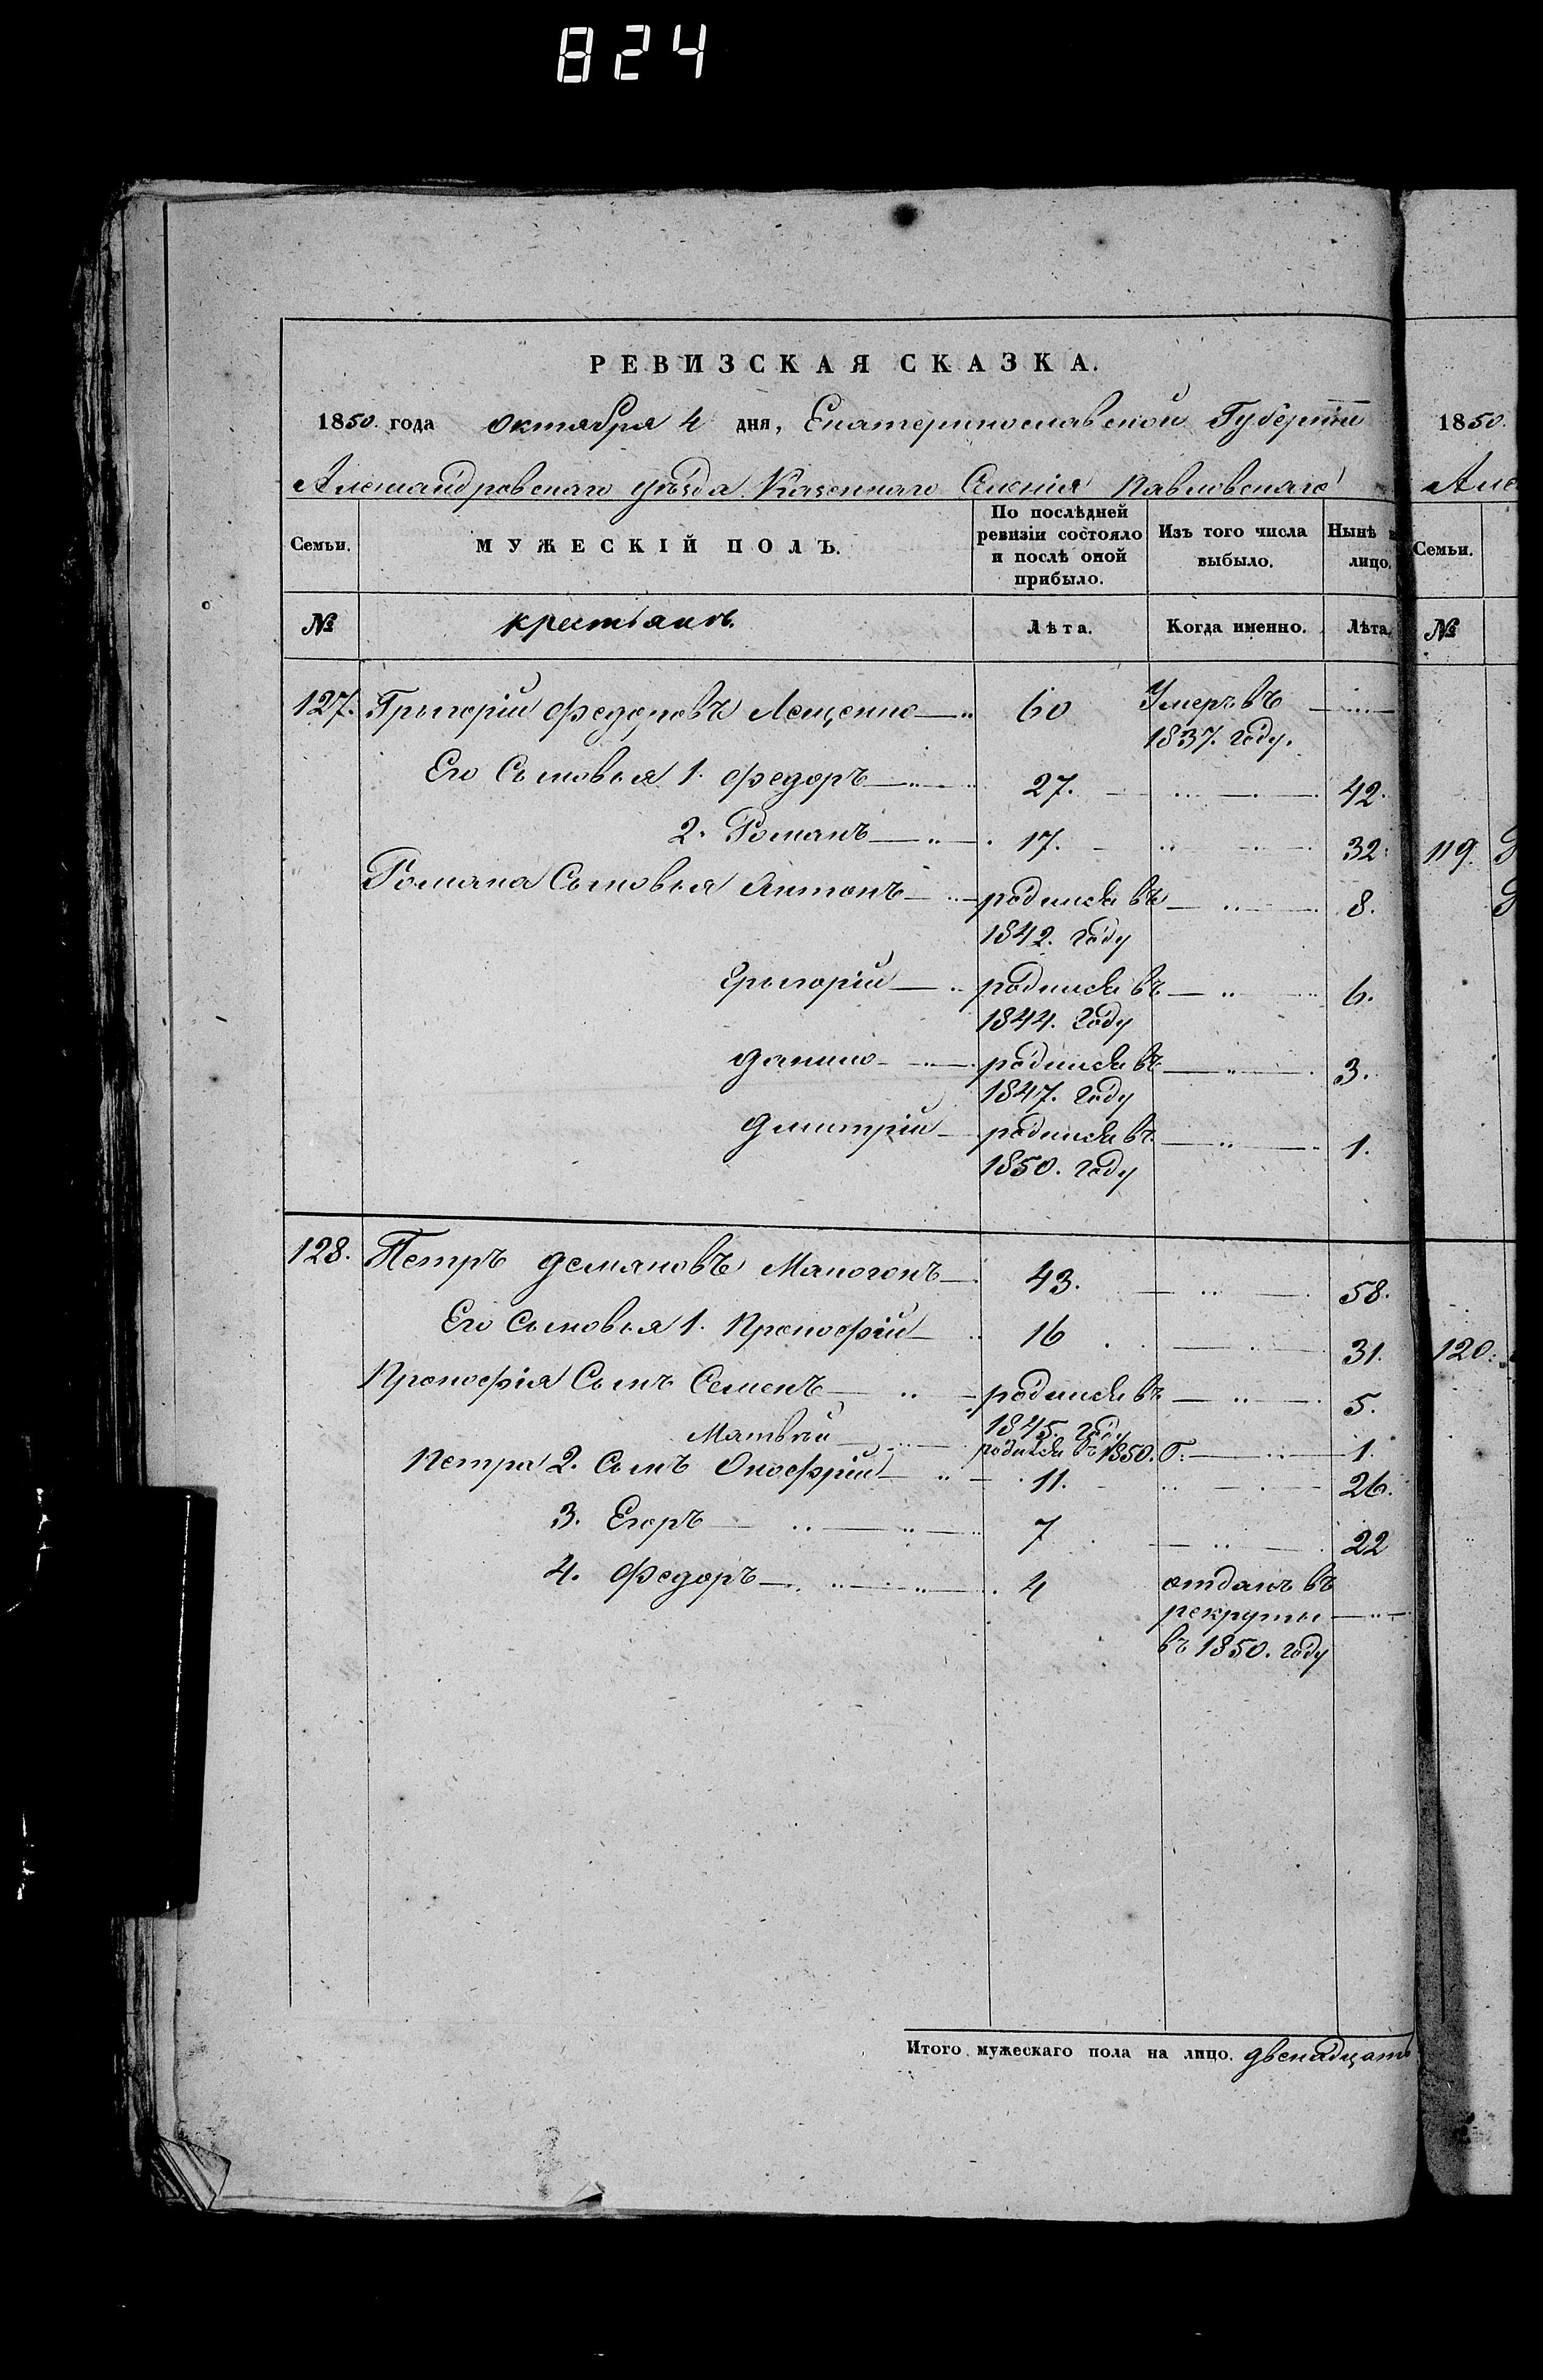 824
РЕВИЗСКАЯ СКАЗКА.
1850. года октября 4 дня, Екатеринославской Губерніи
Александровскаго уѣзда Казеннаго Селенія Павловскаго
Семьи. МУЖЕСКІЙ ПОЛЪ. По послѣдней ревизіи состояло и послѣ оной прибыло. Изъ того числа выбыло. Нынѣ н лицо.
№ крестьянъ. Лѣта. Когда именно. Лѣта.
127. Григорій Федоровъ Лещенко 60 Умеръ въ
1837. году.
Его Сыновья 1. Федоръ 27. 42.
2. Романъ 17. 32.
Романа Сыновья Антонъ родился въ 8.
1842. году
Григорій родился въ 6.
1844. году
Данило родился въ 3.
1847. году
Дмитрій родился въ 1.
1850. году
128. Петръ Демяновъ Макогонъ 43. 58.
Его Сыновья 1. Прокофій 16 31.
Прокофія Сынъ Семенъ родился въ 5.
1845. году
Матвѣй родился въ 1850. г. 1.
Петра 2. Сынъ Онофрій 11. 26.
3. Егоръ 7 22
4. Федоръ 4 отданъ въ
рекруты
въ 1850. году
Итого мужескаго пола на лицо. двенадцать
1850.
Алек
Семьи.
№
119.
120.